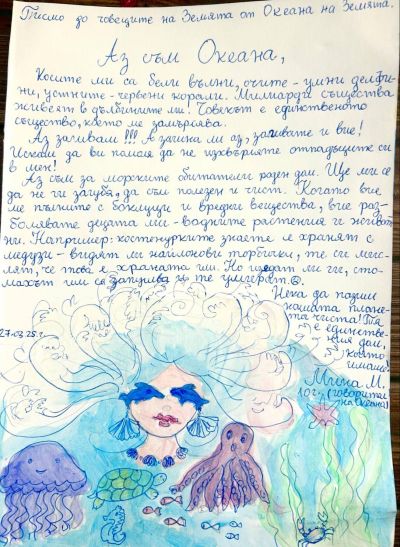 Писмо до човеците на Земята от Океана на Земята.
Аз съм Океана,
Косите ми са бели вълни, очите - умни делфи-
ни, устните - червени корали. Милиарди същества
живеят в дълбините ми! Човекът е единственото
същество, което ме замърсява.
Аз загивам!!! А загина ли аз, загивате и вие!
Искам да ви помоля да не изхвърляте отпадъците си
в мен!
Аз съм за морските обитатели роден дом. Ще ми се
да не ги загубя, да съм полезен и чист. Когато вие
ме пълните с боклуци и вредни вещества, вие раз-
болявате децата ми - водните растения и животни
ни. Например: костенурките знаете се хранят с
медузи - видят ли найлонови торбички, те си мис-
лят, че това е храната им. Но изядат ли ги, сто-
махът им се запушва и те умират.
Нека да пазим
нашата плане-
та чиста! Тя
е единстве-
ния дом,
който
имаме.
27.03.25г.
Мина М.
10г. (говорител
на Океана)